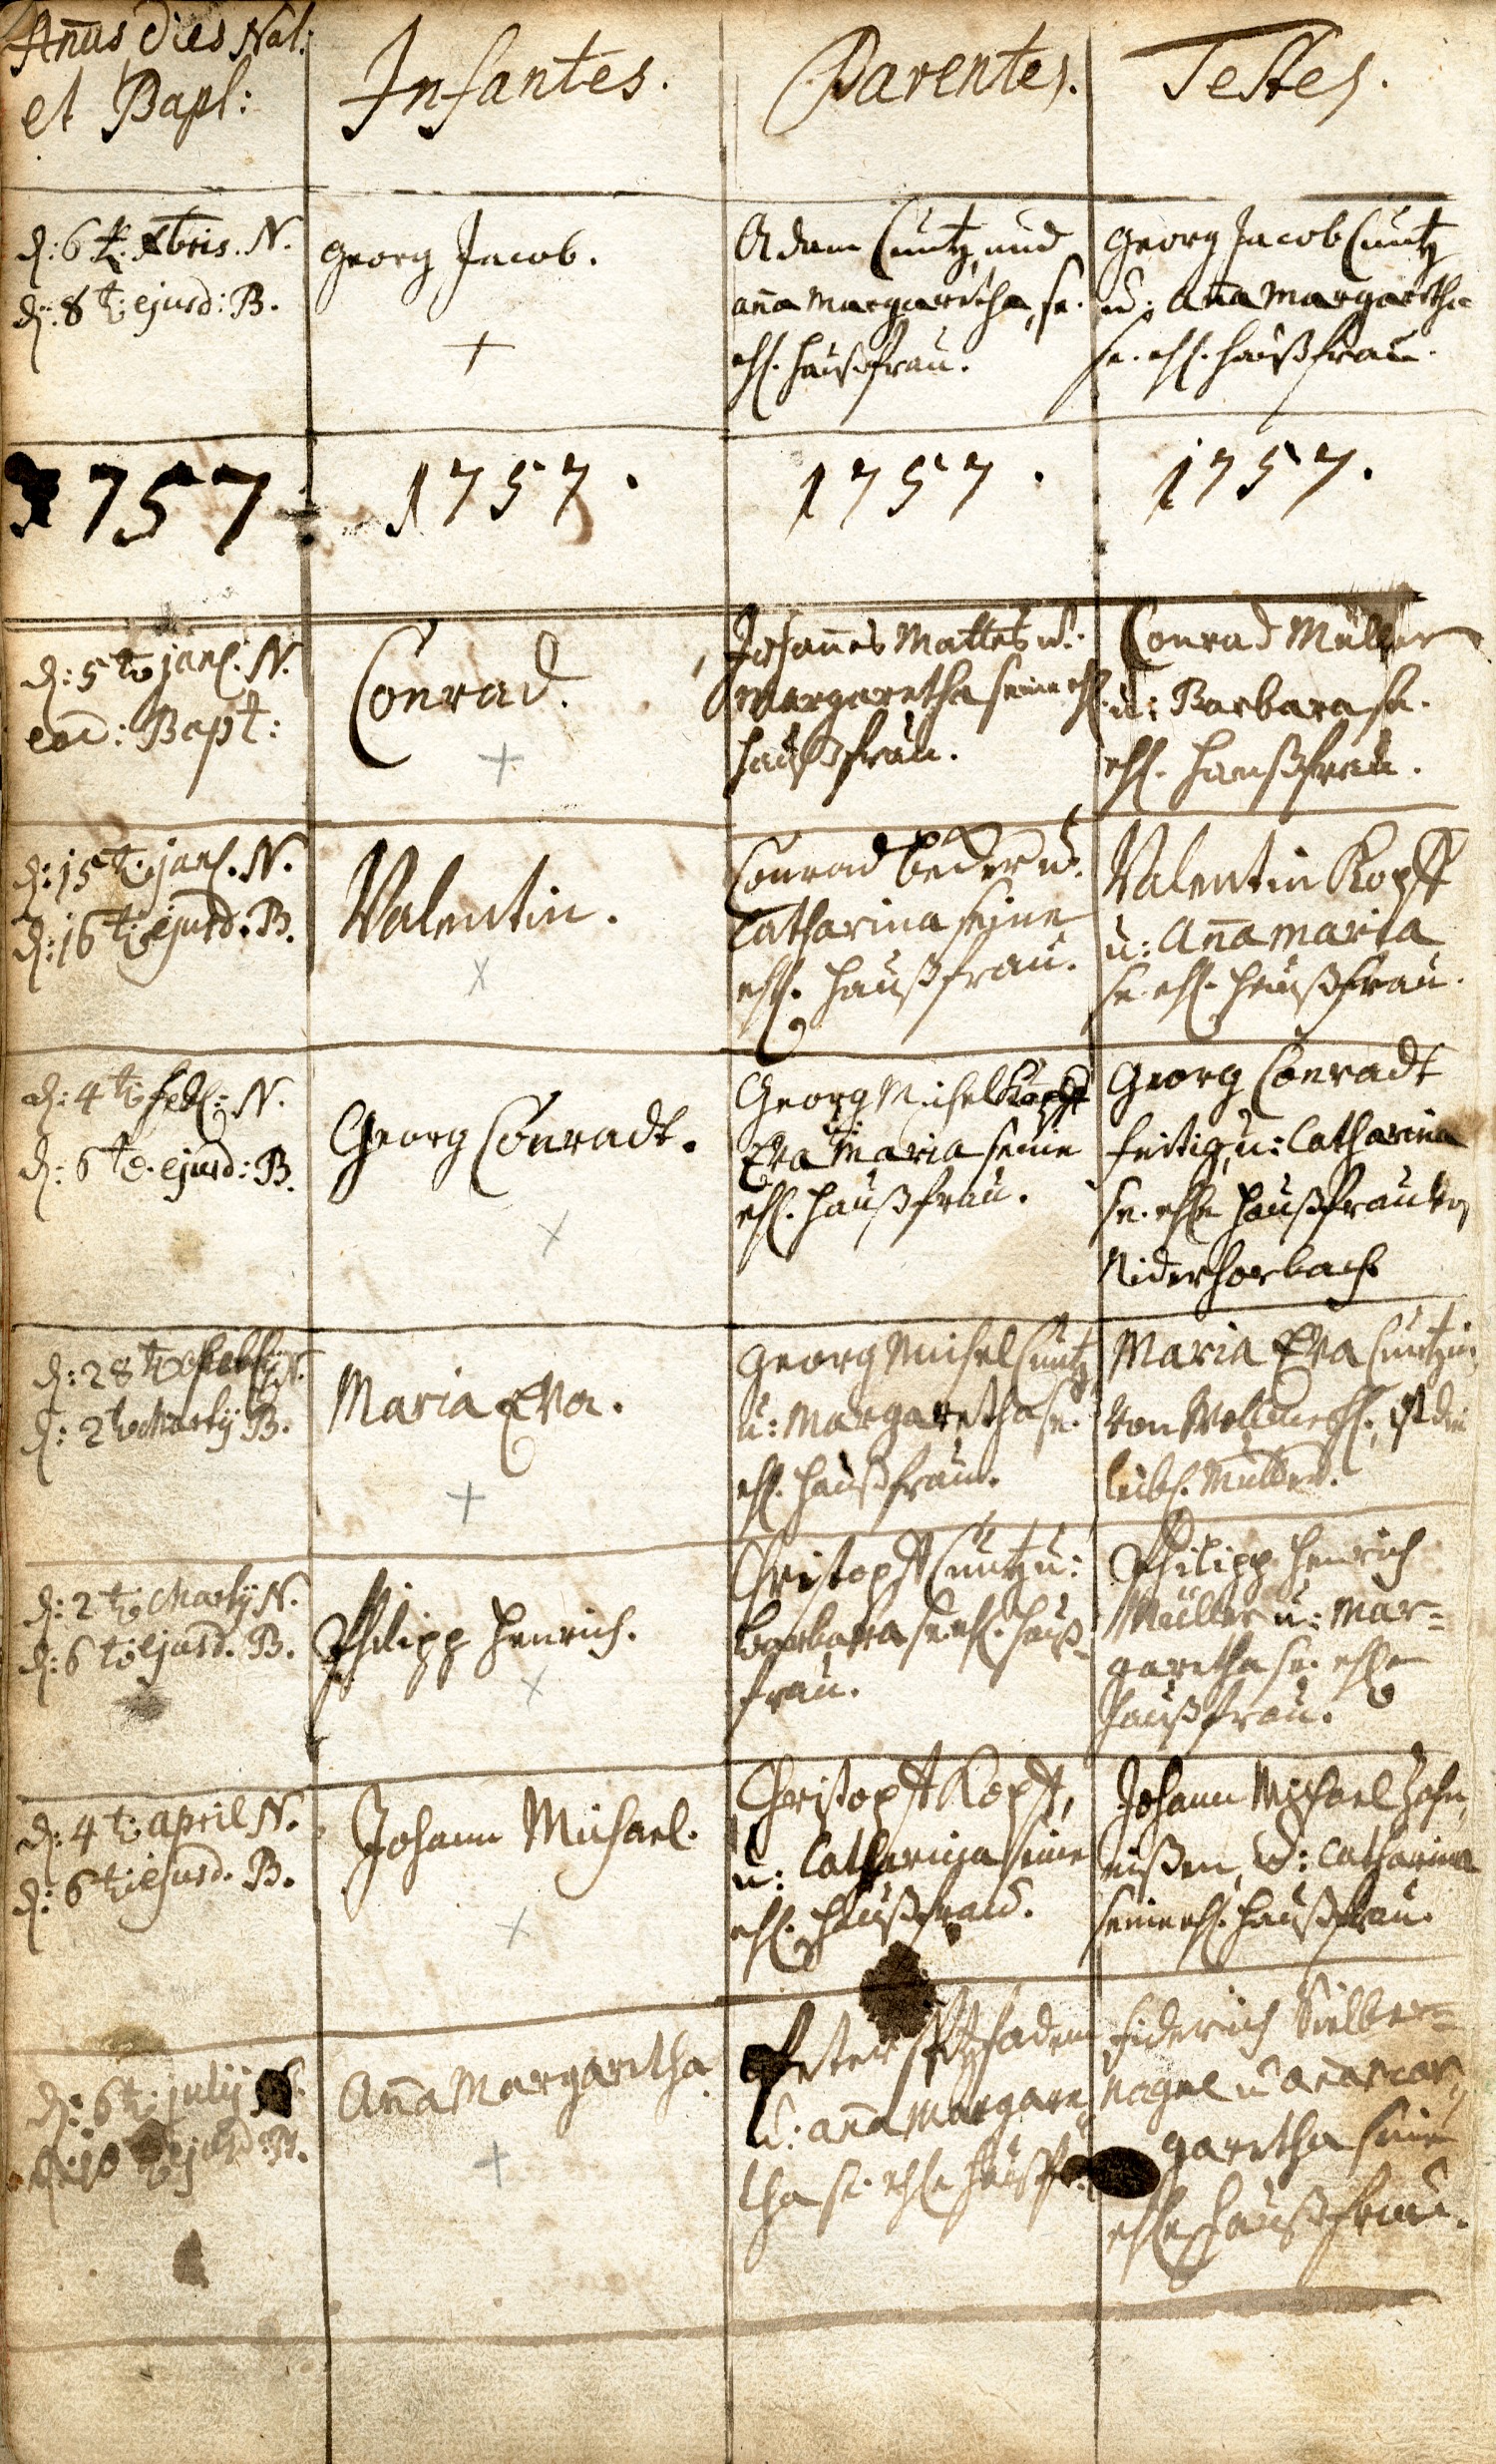 Anūs Dies Nat:
et Bapt:
Infantes.
Parentes.
Testes.
d: 6 t. Xbris. N.
d: 8 t: ejusd: B.
Georg Jacob.
Adam Cuntz, und
anna Margaritha, se.
ehl. haußfrau.
Georg Jacob Cuntz
u: anna Margaritha
se. ehl. haußfrau.
1757
1757.
1757.
1757.
d: 5 t. jan. N.
eod: Bapt:
Conrad.
Johannes Mattes u:
Margaretha seine ehl.
haußfrau.
Conrad Müller
u: Barbara se.
ehl. haußfrau.
d: 15 t. jan. N.
d: 16 t. ejusd. B.
Valentin.
Conrad Becker u.
Catharina seine
ehl. haußfrau.
Valentin Kopff
u: Anna Maria
se. ehl. haußfrau.
d: 4 t. feb: N.
d: 6 t. ejusd: B.
Georg Conradt.
Georg Michel
Eva Maria seine
ehl. haußfrau.
Georg Conradt
feitig, u: Catharina
se. ehl. haußfrau von
Niderhorbach
d: 28 t. N.
d: 2 t. Martij B.
Maria Eva.
Georg Michel Cuntz
u: Margaretha se.
ehl. haußfrau.
Maria Eva Cuntzin
von ist die
leibl. Mutter.
d: 2 t. Martij N.
d: 6 t. ejusd. B.
Philipp Henrich.
Christoph Cuntz u:
Barbara se. ehl. hauß-
frau.
Philipp Henrich
Müller u: Mar-
garetha se. ehl.
haußfrau.
d: 4 t. april N.
d: 6 t. ejusd. B.
Johann Michael.
Christoph Kopff,
u: Catharina seine
ehl. haußfrau.
Johann Michael
u: Catharina
seine ehl. haußfrau.
d: 6 t. julij
d: 10 ejusd. B.
Anna Margaritha
Peter
u: anna Margare-
tha se. ehl.
friderich Silber-
nagel u anna Mar-
garetha seine
ehl. haußfrau.